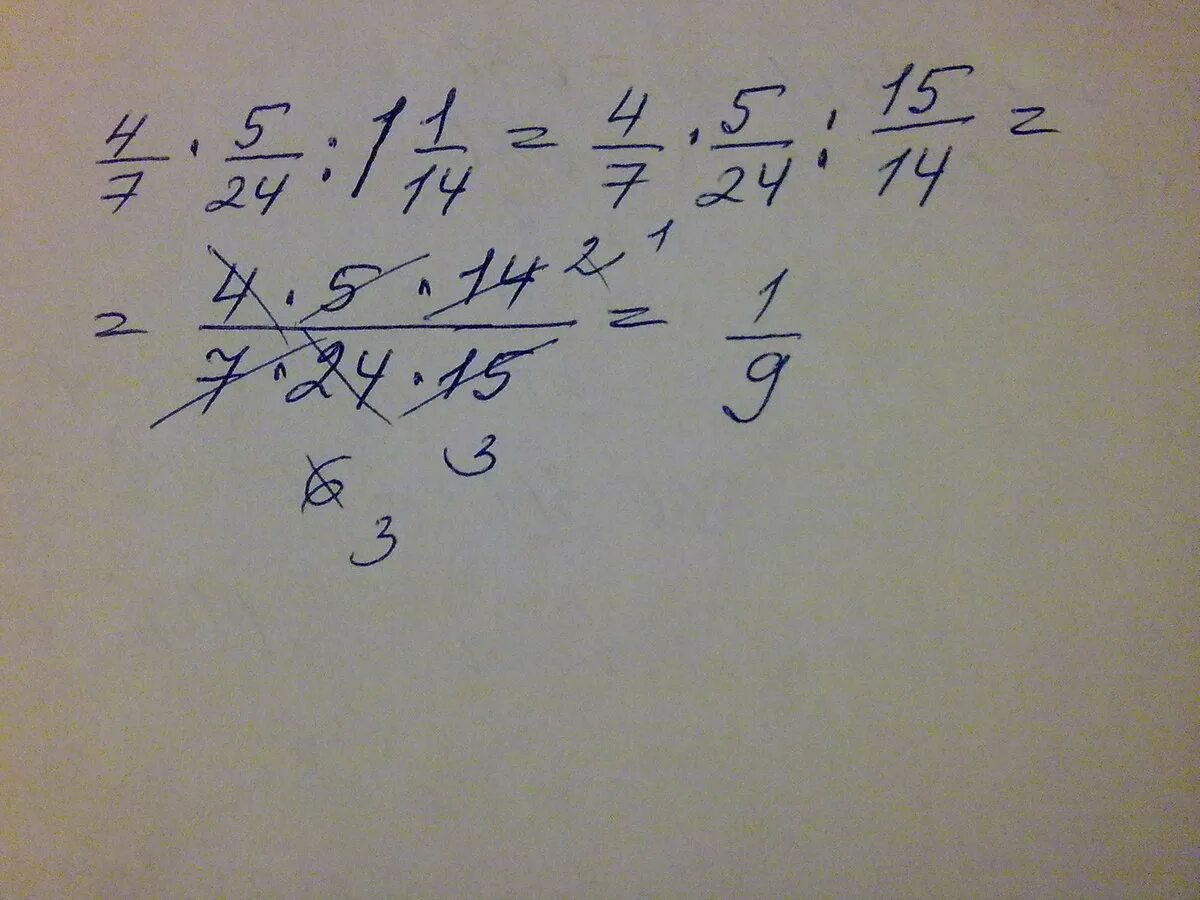 4/7 · 5/24 : 1 1/14 = 4/7 · 5/24 : 15/14 =
= 4 · 5 · 14 2 1 / 7 · 24 · 15 = 1/9
6 3
3